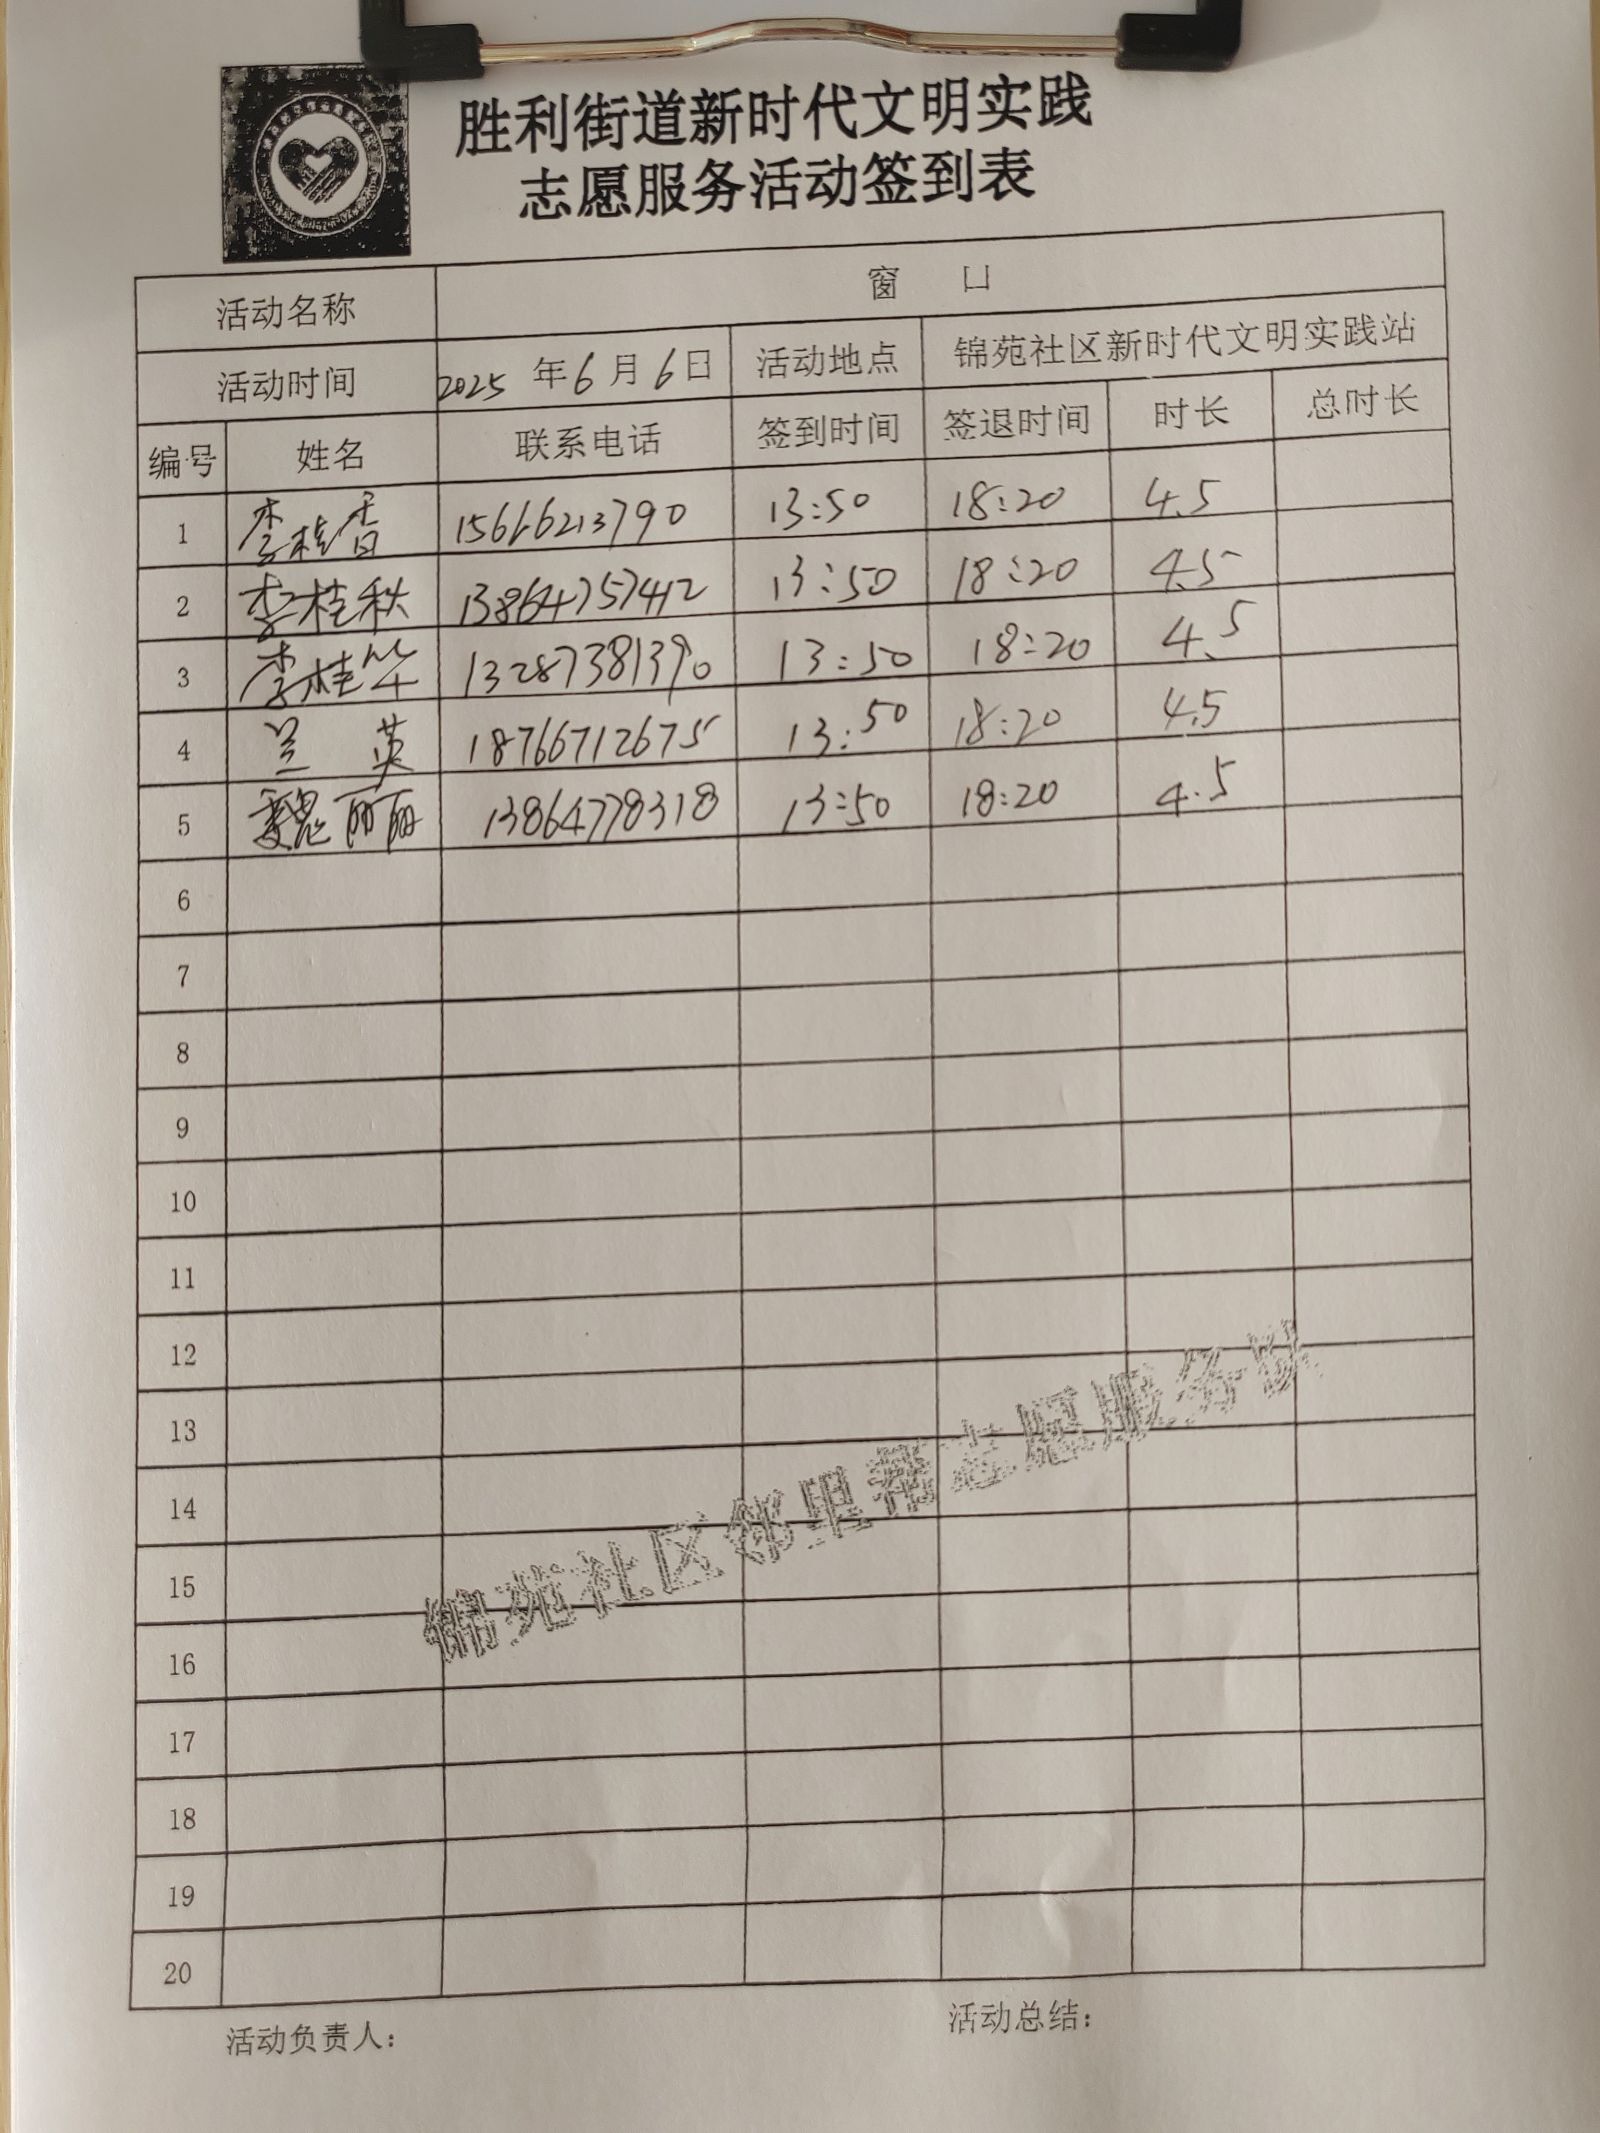 胜利街道新时代文明实践
志愿服务活动签到表
活动名称 窗 口
活动时间 2025 年 6 月 6 日 活动地点 锦苑社区新时代文明实践站
编号 姓名 联系电话 签到时间 签退时间 时长 总时长
1 李桂香 15666213790 13:50 18:20 4.5
2 李桂秋 13864757412 13:50 18:20 4.5
3 李桂华 13287381390 13:50 18:20 4.5
4 兰 英 18766712675 13:50 18:20 4.5
5 魏丽丽 13864778318 13:50 18:20 4.5
6
7
8
9
10
11
12
13
14
15
16
17
18
19
20
锦苑社区邻里帮志愿服务队
活动负责人: 活动总结: